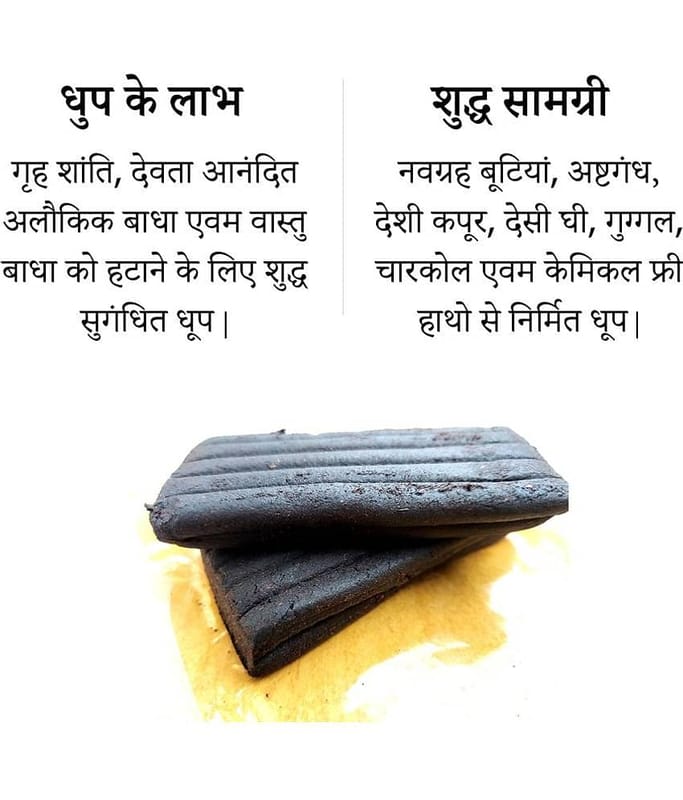 धुप के लाभ
गृह शांति, देवता आनंदित
अलौकिक बाधा एवम वास्तु
बाधा को हटाने के लिए शुद्ध
सुगंधित धूप |
शुद्ध सामग्री
नवग्रह बूटियां, अष्टगंध,
देशी कपूर, देसी घी, गुग्गल,
चारकोल एवम केमिकल फ्री
हाथो से निर्मित धूप |